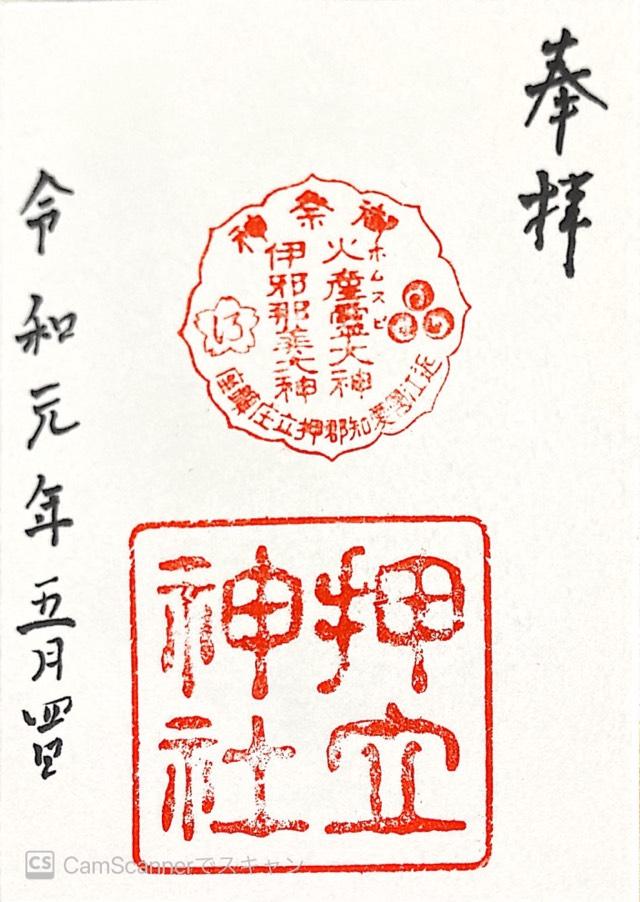 奉拝
御祭神
ホムスビ
火産霊大神
伊邪那美大神
近江國愛知郡押立庄鎮座
押立
神社
令和元年五月四日
CS CamScannerでスキャン